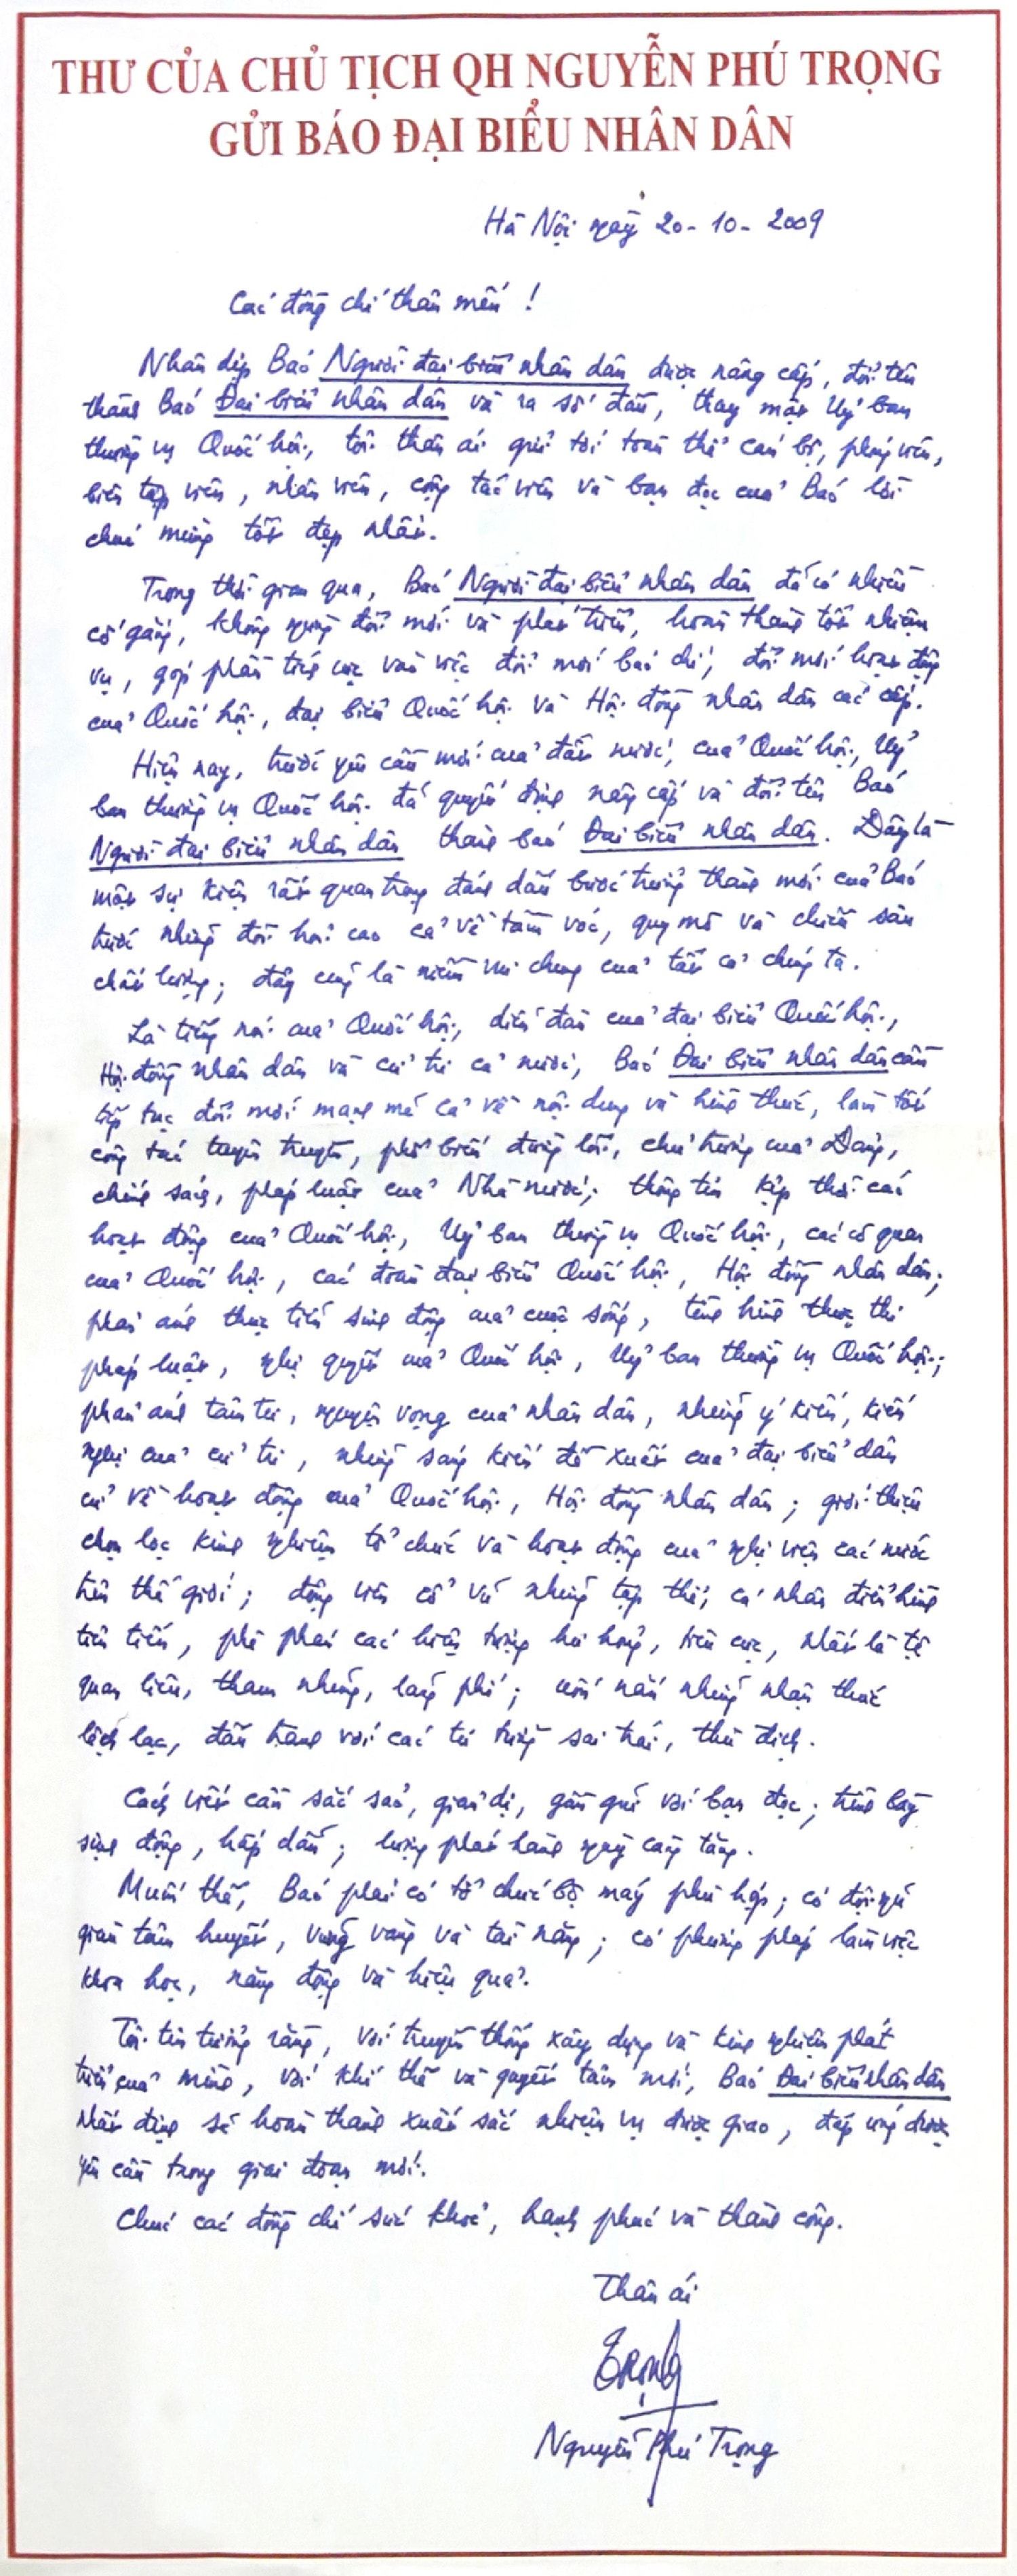 THƯ CỦA CHỦ TỊCH QH NGUYỄN PHÚ TRỌNG
GỬI BÁO ĐẠI BIỂU NHÂN DÂN
Hà Nội ngày 20-10-2009
Các đồng chí thân mến !
Nhân dịp Báo Người đại biểu nhân dân được nâng cấp, đổi tên
thành Báo Đại biểu nhân dân và ra số đầu, thay mặt Uỷ ban
thường vụ Quốc hội, tôi thân ái gửi tới toàn thể cán bộ, phóng viên,
biên tập viên, nhân viên, cộng tác viên và bạn đọc của Báo lời
chúc mừng tốt đẹp nhất.
Trong thời gian qua, Báo Người đại biểu nhân dân đã có nhiều
cố gắng, không ngừng đổi mới và phát triển, hoàn thành tốt nhiệm
vụ, góp phần tích cực vào việc đổi mới báo chí, đổi mới hoạt động
của Quốc hội, đại biểu Quốc hội và Hội đồng nhân dân các cấp.
Hiện nay, trước yêu cầu mới của đất nước, của Quốc hội, Uỷ
ban thường vụ Quốc hội đã quyết định nâng cấp và đổi tên Báo
Người đại biểu nhân dân thành báo Đại biểu nhân dân. Đây là
một sự kiện rất quan trọng đánh dấu bước trưởng thành mới của Báo
trước những đòi hỏi cao cả về tầm vóc, quy mô và chiều sâu
chất lượng; đây cũng là niềm vui chung của tất cả chúng ta.
Là tiếng nói của Quốc hội, diễn đàn của đại biểu Quốc hội,
Hội đồng nhân dân và cử tri cả nước, Báo Đại biểu nhân dân cần
tiếp tục đổi mới mạnh mẽ cả về nội dung và hình thức, làm tốt
công tác tuyên truyền, phổ biến đường lối, chủ trương của Đảng,
chính sách, pháp luật của Nhà nước; thông tin kịp thời các
hoạt động của Quốc hội, Uỷ ban thường vụ Quốc hội, các cơ quan
của Quốc hội, các đoàn đại biểu Quốc hội, Hội đồng nhân dân;
phản ánh thực tiễn sinh động của cuộc sống, tình hình thực thi
pháp luật, nghị quyết của Quốc hội, Uỷ ban thường vụ Quốc hội;
phản ánh tâm tư, nguyện vọng của nhân dân, những ý kiến, kiến
nghị của cử tri, những sáng kiến đề xuất của đại biểu dân
cử về hoạt động của Quốc hội, Hội đồng nhân dân; giới thiệu
chọn lọc kinh nghiệm tổ chức và hoạt động của nghị viện các nước
trên thế giới; động viên cổ vũ những tập thể, cá nhân điển hình
tiên tiến, phê phán các hiện tượng hư hỏng, tiêu cực, nhất là tệ
quan liêu, tham nhũng, lãng phí; uốn nắn những nhận thức
lệch lạc, đấu tranh với các tư tưởng sai trái, thù địch.
Cách viết cần sắc sảo, giản dị, gần gũi với bạn đọc; trình bày
sinh động, hấp dẫn; lượng phát hành ngày càng tăng.
Muốn thế, Báo phải có tổ chức bộ máy phù hợp; có đội ngũ
giàu tâm huyết, vững vàng và tài năng; có phương pháp làm việc
khoa học, năng động và hiệu quả.
Tôi tin tưởng rằng, với truyền thống xây dựng và kinh nghiệm phát
triển của mình, với khí thế và quyết tâm mới, Báo Đại biểu nhân dân
nhất định sẽ hoàn thành xuất sắc nhiệm vụ được giao, đáp ứng được
yêu cầu trong giai đoạn mới.
Chúc các đồng chí sức khoẻ, hạnh phúc và thành công.
Thân ái
Trọng
Nguyễn Phú Trọng